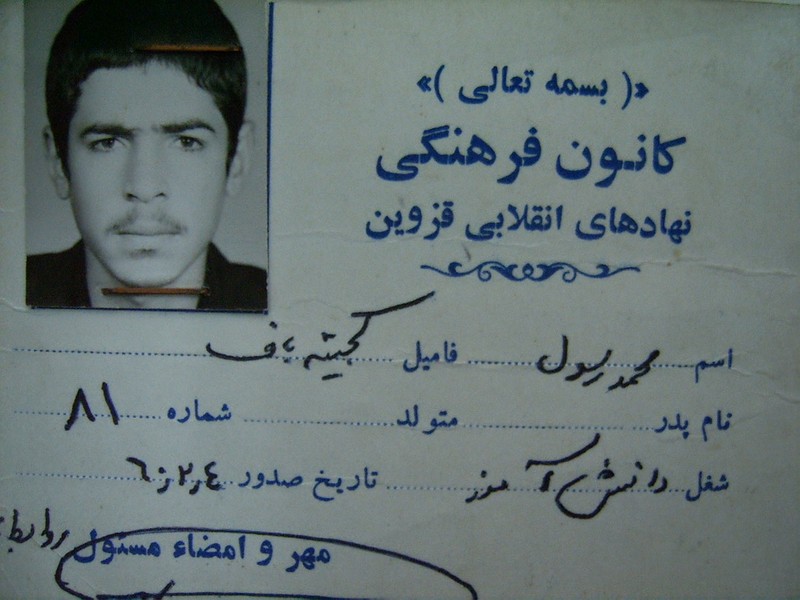 «( بسمه تعالی )»
کانون فرهنگی
نهادهای انقلابی قزوین
اسم محمد رسول فامیل
نام پدر متولد شماره ۸۱
شغل دانش آموز تاریخ صدور ۶۰٫۲٫۴
مهر و امضاء مسئول